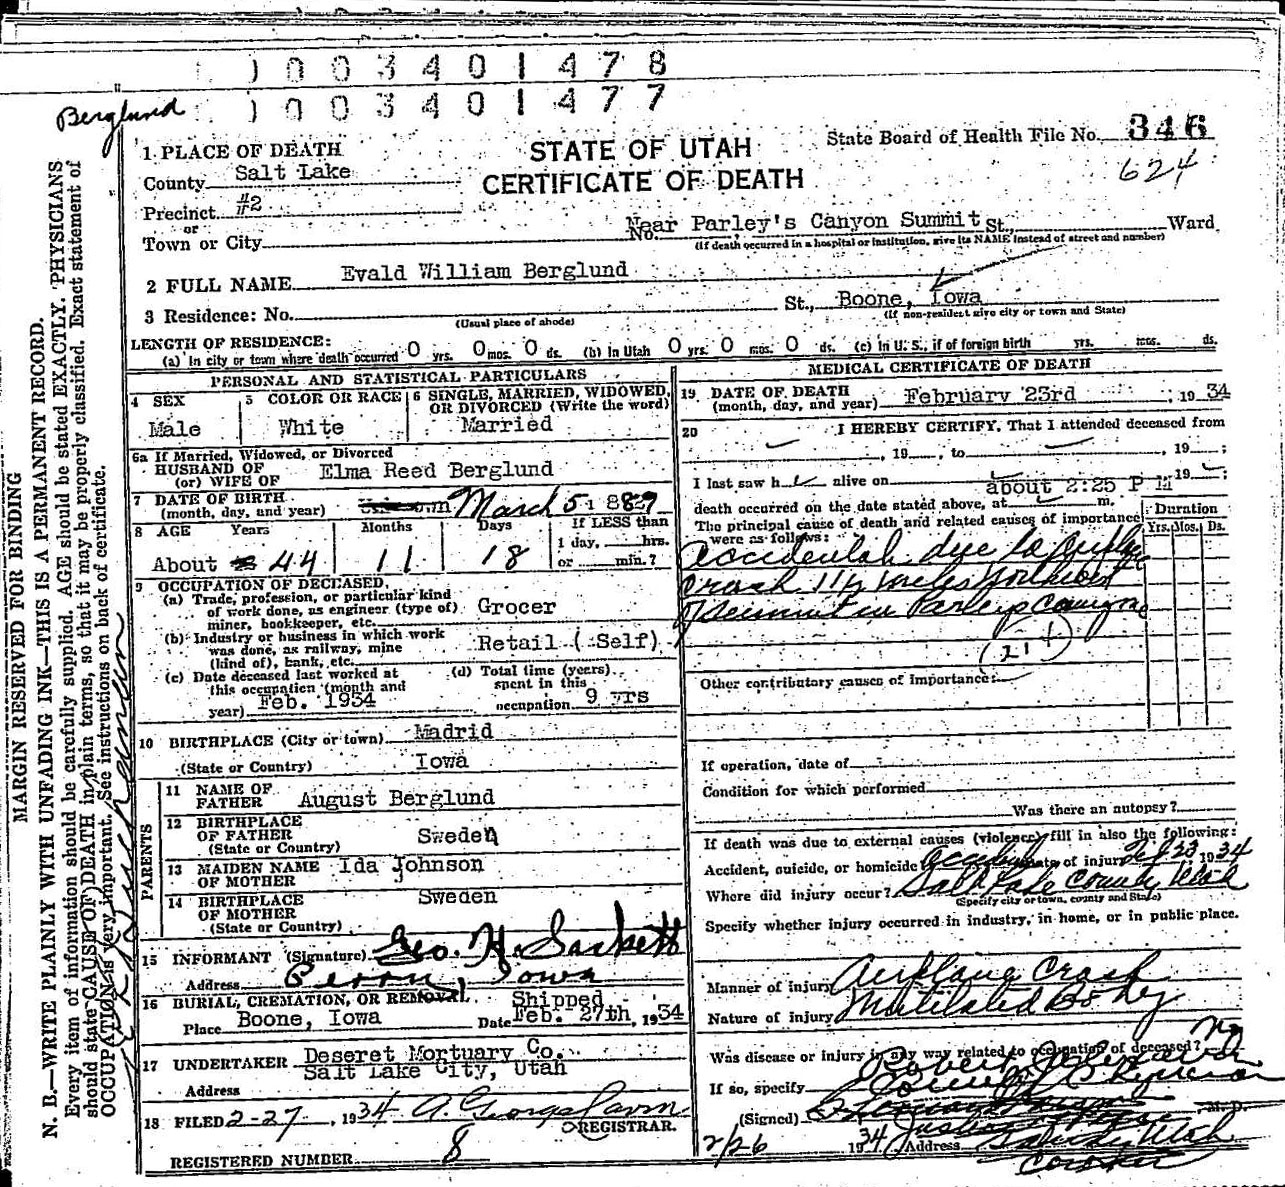 1003401478
1003401477
Berglund
State Board of Health File No. 346
624
STATE OF UTAH
CERTIFICATE OF DEATH
1 PLACE OF DEATH
County Salt Lake
Precinct #2
or
Town or City
No. Near Parley's Canyon Summit St., Ward
(If death occurred in a hospital or institution, give its NAME instead of street and number)
2 FULL NAME Evald William Berglund
3 Residence: No. St., Boone, Iowa
(Usual place of abode) (If non-resident give city or town and State)
LENGTH OF RESIDENCE:
(a) In city or town where death occurred 0 yrs. 0 mos. 0 ds. (b) In Utah 0 yrs. 0 mos. 0 ds. (c) In U. S., if of foreign birth yrs. mos. ds.
PERSONAL AND STATISTICAL PARTICULARS
4 SEX Male
5 COLOR OR RACE White
6 SINGLE, MARRIED, WIDOWED, OR DIVORCED (Write the word) Married
6a If Married, Widowed, or Divorced
HUSBAND OF
(or) WIFE OF Elma Reed Berglund
7 DATE OF BIRTH
(month, day, and year) March 5 1889
8 AGE Years Months Days If LESS than
1 day, hrs.
or min.?
About 44 11 18
9 OCCUPATION OF DECEASED.
(a) Trade, profession, or particular kind
of work done, as engineer (type of)
miner, bookkeeper, etc. Grocer
(b) Industry or business in which work
was done, as railway, mine
(kind of), bank, etc. Retail (Self)
(c) Date deceased last worked at
this occupation (month and
year) Feb. 1934
(d) Total time (years)
spent in this
occupation 9 yrs
10 BIRTHPLACE (City or town) Madrid
(State or Country) Iowa
PARENTS
11 NAME OF
FATHER August Berglund
12 BIRTHPLACE
OF FATHER
(State or Country) Sweden
13 MAIDEN NAME
OF MOTHER Ida Johnson
14 BIRTHPLACE
OF MOTHER
(State or Country) Sweden
15 INFORMANT (Signature) Geo. H. Sackett
Address Perry, Iowa
16 BURIAL, CREMATION, OR REMOVAL Shipped
Place Boone, Iowa Date Feb. 27th, 1934
17 UNDERTAKER Deseret Mortuary Co.
Salt Lake City, Utah
Address
18 FILED 2-27, 1934
REGISTRAR.
REGISTERED NUMBER 8
MEDICAL CERTIFICATE OF DEATH
19 DATE OF DEATH
(month, day, and year) February 23rd, 1934
20 I HEREBY CERTIFY, That I attended deceased from
, 19 , to , 19 ;
I last saw h alive on 19 ;
about 2:25 P M
death occurred on the date stated above, at m.
The principal cause of death and related causes of importance
were as follows:
Duration
Yrs. Mos. Ds.
Accidental due to airplane
crash 1 1/2 miles
of summit in Parleys Canyon
Other contributary causes of importance:
If operation, date of
Condition for which performed
Was there an autopsy?
If death was due to external causes (violence) fill in also the following:
Accident, suicide, or homicide? Accident Date of injury 2/23 1934
Where did injury occur? Salt Lake County Utah
(Specify city or town, county and State)
Specify whether injury occurred in industry, in home, or in public place.
Manner of injury Airplane Crash
Nature of injury Mutilated Body
Was disease or injury in any way related to occupation of deceased? No
If so, specify
(Signed) M. D.
2/26 1934 Address
MARGIN RESERVED FOR BINDING
N. B.—WRITE PLAINLY WITH UNFADING INK—THIS IS A PERMANENT RECORD.
Every item of information should be carefully supplied. AGE should be stated EXACTLY. PHYSICIANS
should state CAUSE OF DEATH in plain terms, so that it may be properly classified. Exact statement of
OCCUPATION is very important. See instructions on back of certificate.